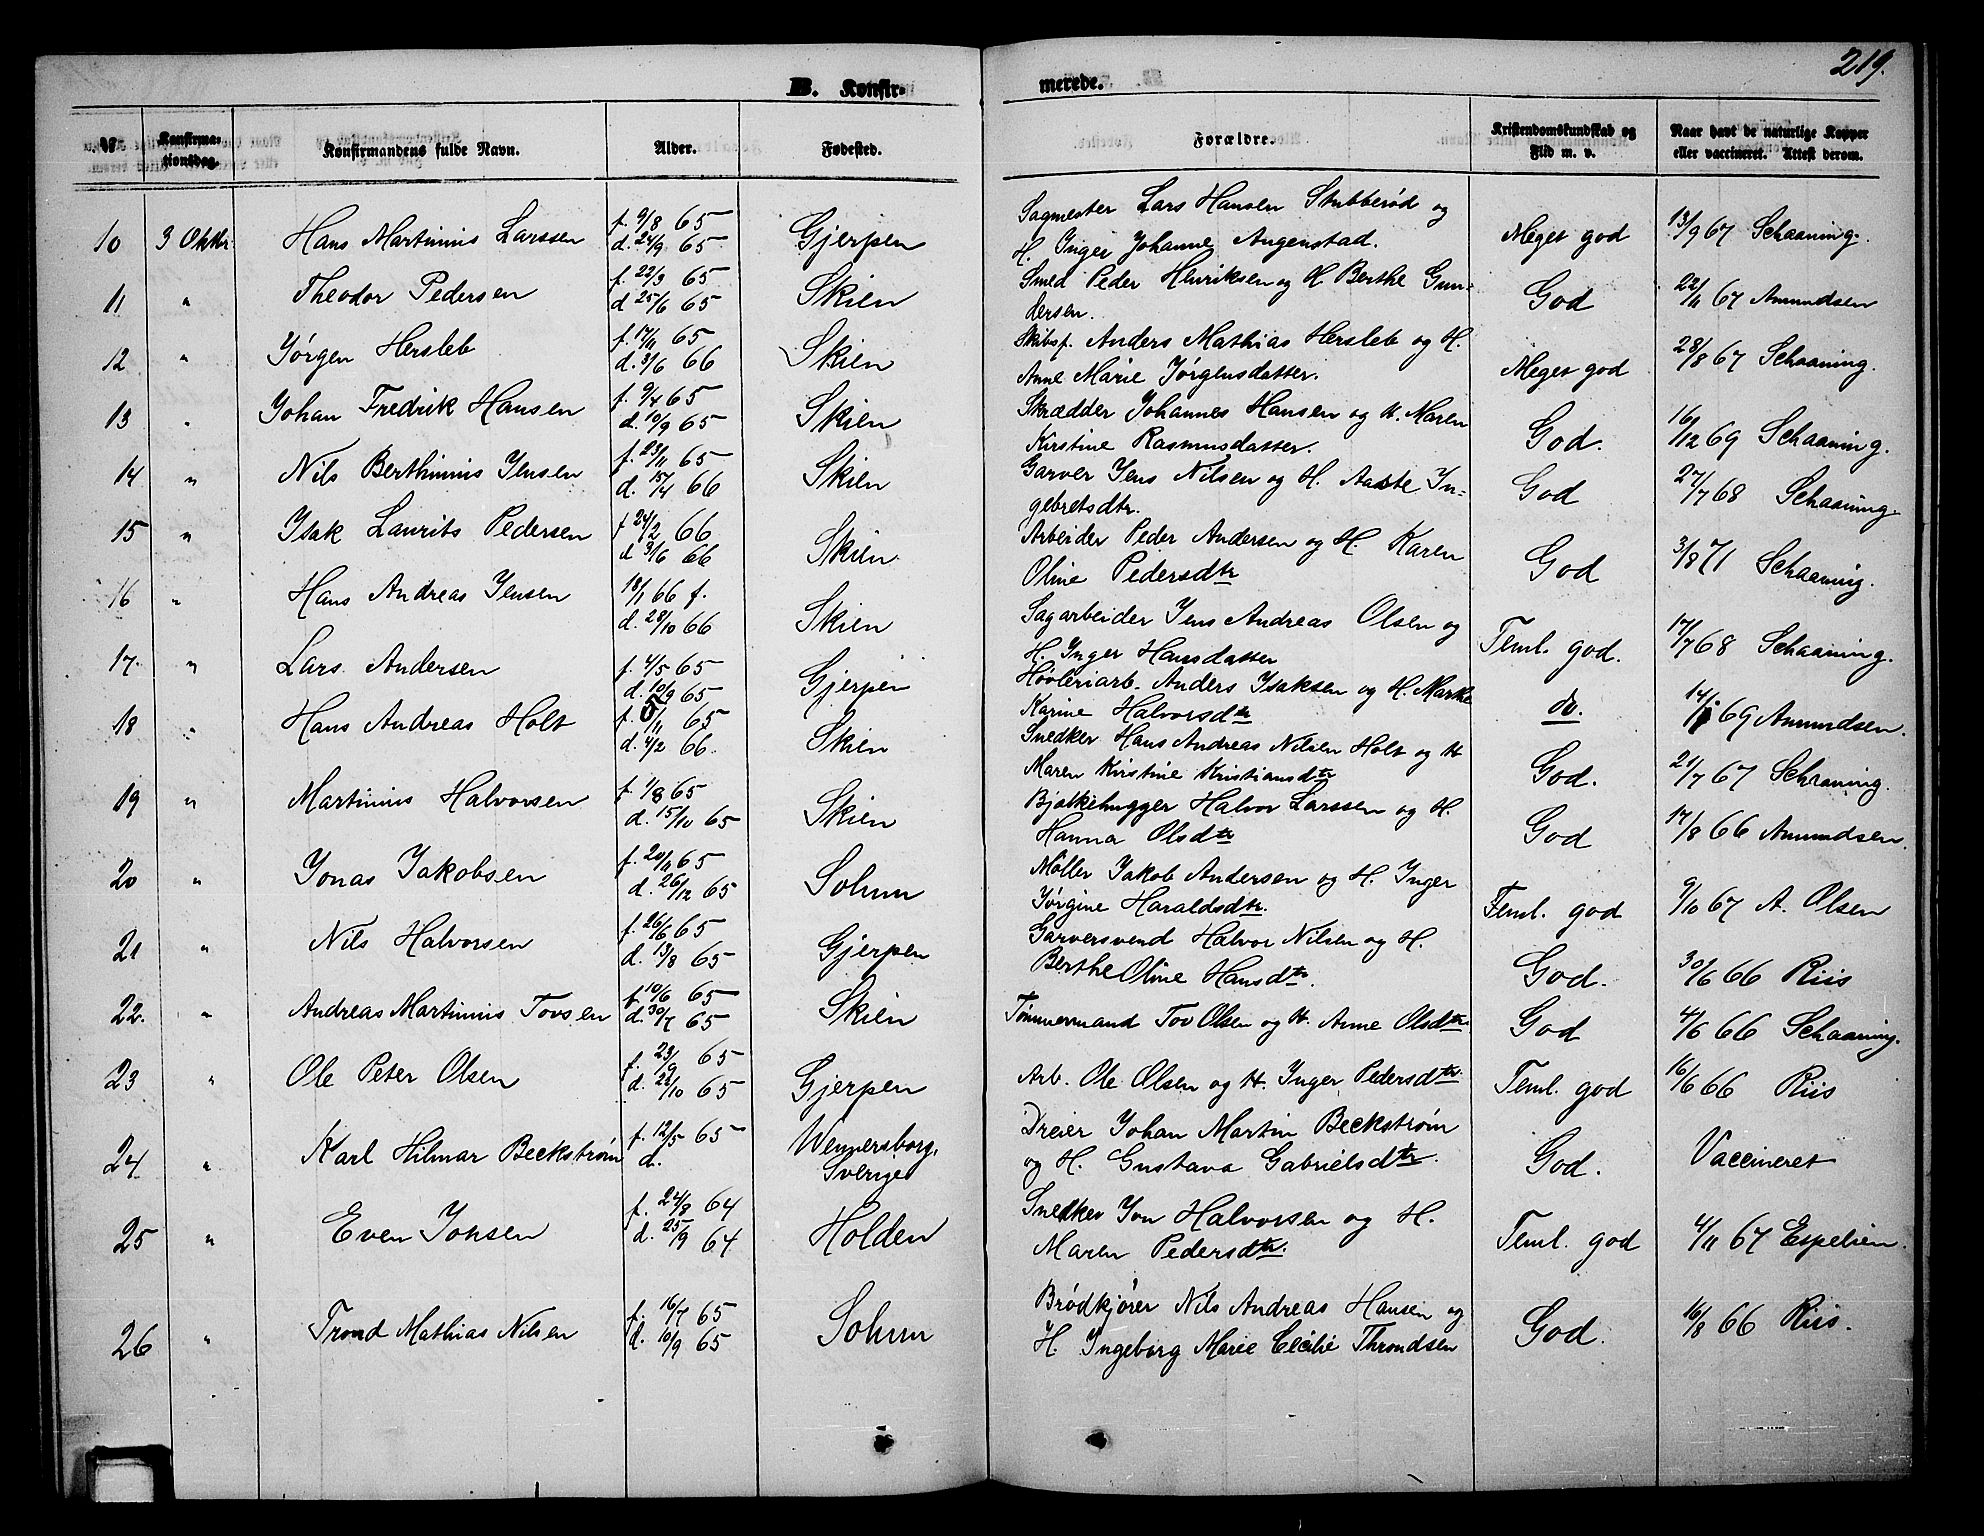 219.
B. Konfir-
merede.
№
Konfirma-
tionsdag.
Konfirmandens fulde Navn.
Alder.
Fødested.
Forældre.
Kristendomskundskab og
Flid m. v.
Naar havt de naturlige Kopper
eller vaccineret. Attest derom.
10 3 Oktbr Hans Martinius Larssen f. 9/8 65 d. 24/9 65 Gjerpen
Sagmester Lars Hansen Stubberød og
H. Inger Johanne Augenstad.
Meget god 13/9 67 Schaaning.
11 " Theodor Pedersen f. 22/3 65 d 25/6 65 Skien
Smed Peder Henriksen og H Berthe Gun-
dersen.
God 22/11 67 Amundsen
12 " Jørgen Hersleb f. 17/11 65 d. 3/6 66 Skien
Skibsf. Anders Mathias Hersleb og H.
Anne Marie Jørgensdatter.
Meget god 28/8 67 Schaaning.
13 " Johan Fredrik Hansen f. 9/4 65 d. 10/9 65 Skien
Skrædder Johannes Hansen og H. Maren
Kirstine Rasmusdatter.
God. 16/12 69 Schaaning.
14 " Nils Berthinius Jensen f. 23/11 65 d. 15/4 66 Skien
Garver Jens Nilsen og H. Aaste In-
gebretsdtr.
God 27/7 68 Schaaning.
15 " Isak Laurits Pedersen f 24/2 66 d 3/6 66 Skien.
Arbeider Peder Andersen og H. Karen
Oline Pedersdtr
God 3/8 71 Schaaning.
16 " Hans Andreas Jensen 18/1 66 f. d. 28/10 66 Skien
Sagarbeider Jens Andreas Olsen og
H. Inger Hansdatter
Teml. god. 17/7 68 Schaaning.
17. " Lars Andersen f. 4/5 65 d. 10/9 65 Gjerpen
Høvleriarb. Anders Isaksen og H. Marthe
Karine Halvorsdtr
do. 69 Amundsen.
18 " Hans Andreas Holt f. 5/11 65 d. 4/2 66. Skien
Snedker Hans Andreas Nilsen Holt og H
Maren Kirstine Kristiansdtr
God. 21/7 67 Schaaning.
19 " Martinius Halvorsen f 1/8 65 d. 15/10 65 Skien
Bjælkehugger Halvor Larssen og H.
Hanna Olsdtr
God 17/8 66 Amundsen.
20 " Jonas Jakobsen f. 20/11 65 d. 26/12 65 Solum
Møller Jakob Andersen og H. Inger
Jørgine Haraldsdtr.
Teml. god 9/10 67 A. Olsen
21 " Nils Halvorsen f. 26/6 65 d. 13/8 65 Gjerpen
Garversvend Halvor Nilsen og H.
Berthe Oline Hansdtr.
God. 30/6 66 Riis
22. " Andreas Martinius Tovsen f. 10/6 65 d. 30/7 65 Skien
Tømmermand Tov Olsen og H. Anne Olsdtr.
God 4/6 66 Schaaning.
23 " Ole Peter Olsen f. 23/9 65 d. 22/10 65 Gjerpen
Arb. Ole Olsen og H. Inger Pedersdtr
Teml. god 16/6 66 Riis
24 " Karl Hilmar Beckstrøm f. 12/5 65 d. Wennersborg,
Sverige
Dreier Johan Martin Beckstrøm
og H. Gustava Gabrielsdtr.
God. Vaccineret
25 " Even Johsen f. 24/8 64 d. 25/9 64 Holden
Snedker Jon Halvorsen og H.
Maren Pedersdtr.
Teml. god 4/11 67 Espelien.
26 " Trond Mathias Nilsen f. 16/7 65 d. 10/9 65 Solum
Brødkjører Nils Andreas Hansen og
H. Ingeborg Marie Cecilie Throndsen
God. 16/8 66 Riis.